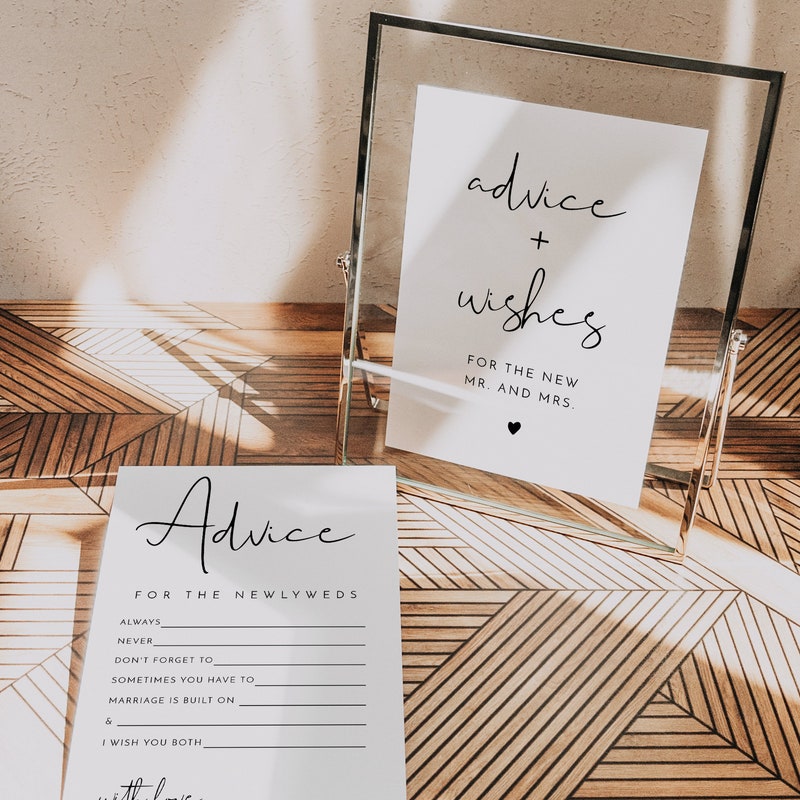 advice
+
wishes
FOR THE NEW
MR. AND MRS.
Advice
FOR THE NEWLYWEDS
ALWAYS
NEVER
DON'T FORGET TO
SOMETIMES YOU HAVE TO
MARRIAGE IS BUILT ON
&
I WISH YOU BOTH
with love